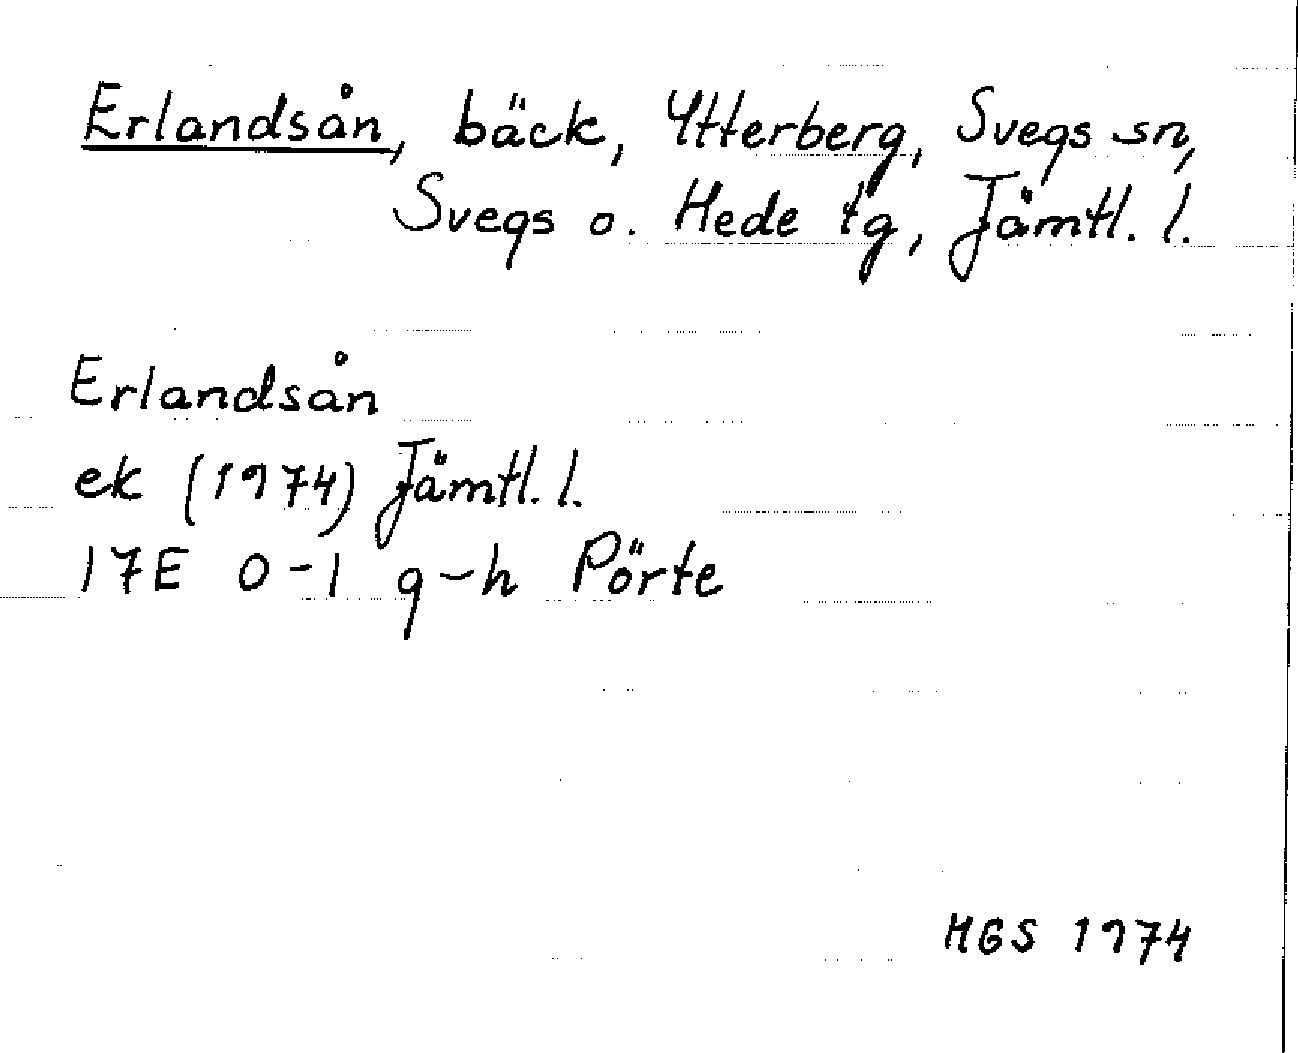 Erlandsån, bäck, Ytterberg, Svegs sn,
Svegs o. Hede tg, Jämtl. l.
Erlandsån
ek (1974) Jämtl. l.
17E 0-1 g-h Pörte
HGS 1974